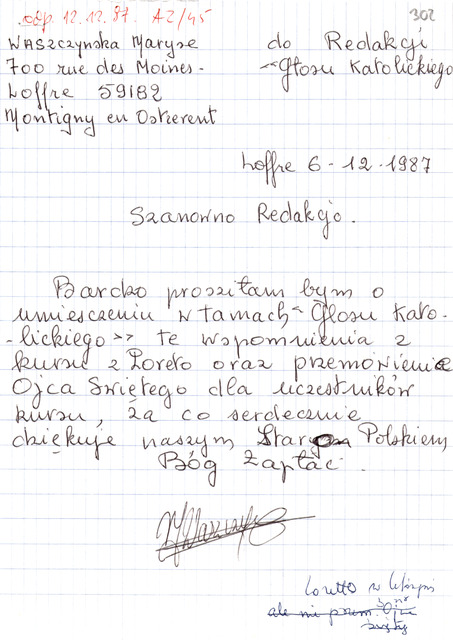 odp. 12.12.87. AZ/45
302
WASZCZYńSKA Maryse
700 rue des Moines -
Loffre 59182
Montigny en Ostrerent
do Redakcji
"Głosu Katolickiego
Loffre 6-12-1987
Szanowno Redakcjo.
Bardzo prosziłam bym o
umiesczeniu w łamach "Głosu Kato-
-lickiego>> te wspomnienia z
kursu z Loreto oraz przemówienie
Ojca Świętego dla uczestników
kursu, za co serdecznie
dziękuje naszym Starym Polskiem
Bóg Zapłać.
Loretto w
ale ni przem. Ojca